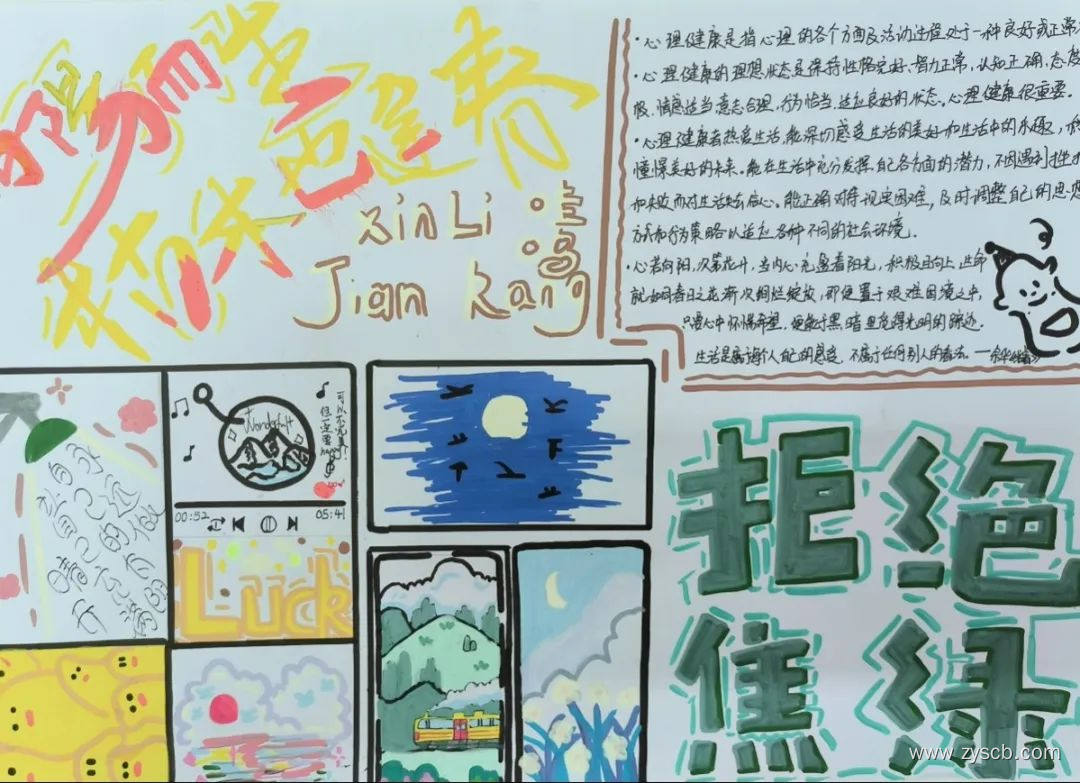 XinLi
Jian Kang
·心理健康是指心理的各个方面及活动过程处于一种良好或正常
·心理健康的理想状态是保持性格完好、智力正常、认知正确、态度
极、情感适当、意志合理、行为恰当、适应良好的状态。心理健康很重要。
·心理健康者热爱生活,能深切感受生活的美好和生活中的乐趣,积
憧憬美好的未来。能在生活中充分发挥自己各方面的潜力,不因遇到挫折
和失败而对生活失去信心。能正确对待现实困难,及时调整自己的思想
方式和行为策略以适应各种不同的社会环境。
·心若向阳,次第花开,当内心充盈着阳光,积极且向上,
就如同春日之花渐次绚烂绽放,即便置于艰难困境之中,
只要心中怀揣希望,便能于黑暗里觅得光明的踪迹。
生活是属于每个人自己的感受,不属于任何别人的看法。——余华《活着》
可以不完美!
但一定要
happy
Wonderful
00:52
05:41
Luck
拒绝
焦绿
www.zyscb.com